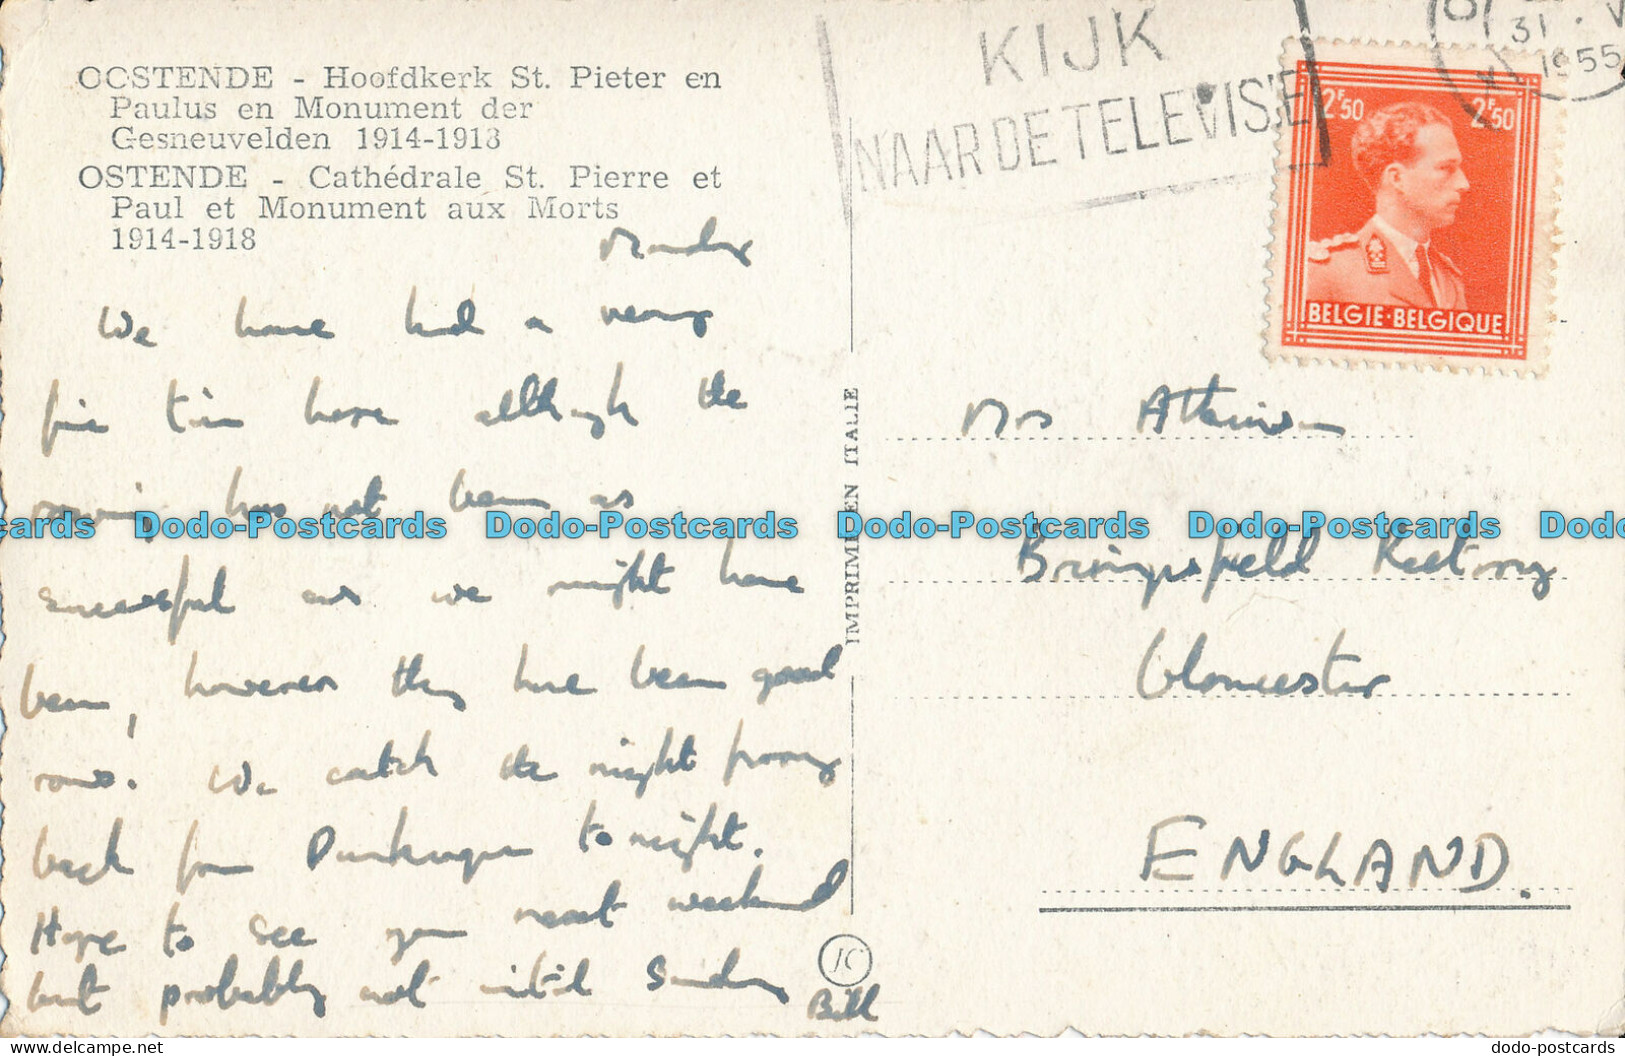 OOSTENDE - Hoofdkerk St. Pieter en
Paulus en Monument der
Gesneuvelden 1914-1918
OSTENDE - Cathédrale St. Pierre et
Paul et Monument aux Morts
1914-1918
Monday
We have had a very
fine time here although the
rowing has not been as
successful as we might have
been, however they have been good
rows. We catch the night ferry
back from Dunkerque tonight.
Hope to see you next weekend
but probably not until Sunday
Bill
IMPRIMÉ EN ITALIE
JC
KIJK
NAAR DE TELEVISIE
31 . V
1955
2F50 2F50
BELGIE·BELGIQUE
Mrs Atkinson
Bringsfield Rectory
Gloucester
ENGLAND.
Dodo-Postcards Dodo-Postcards Dodo-Postcards Dodo-Postcards
dodo-postcards
dodo-postcards